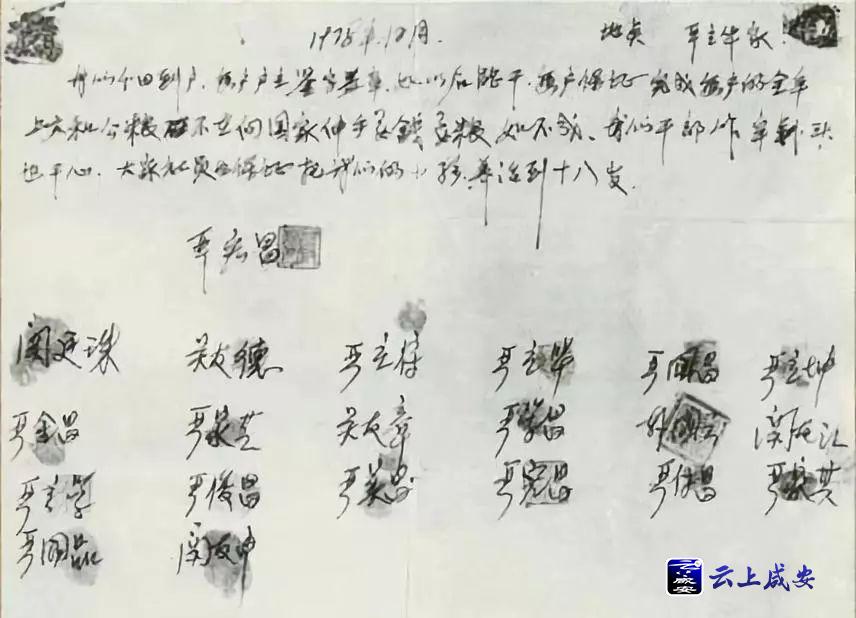 1978年12月. 地点 严立华家
我们分田到户,每户户主签字盖章,如以后能干,每户保证完成每户的全年
上交和公粮 不在向国家伸手要钱要粮 如不成、我们干部作牢刹头
也干心,大家社员也保证把我们的小孩养活到十八岁.
严宏昌
关廷珠 关友德 严立符 严立华 严国昌 严立坤
严金昌 严家芝 关友章 严学昌 关友江
严立学 严俊昌 严美昌 严宏昌 严付昌 严家其
严国品 关友申
云上咸安